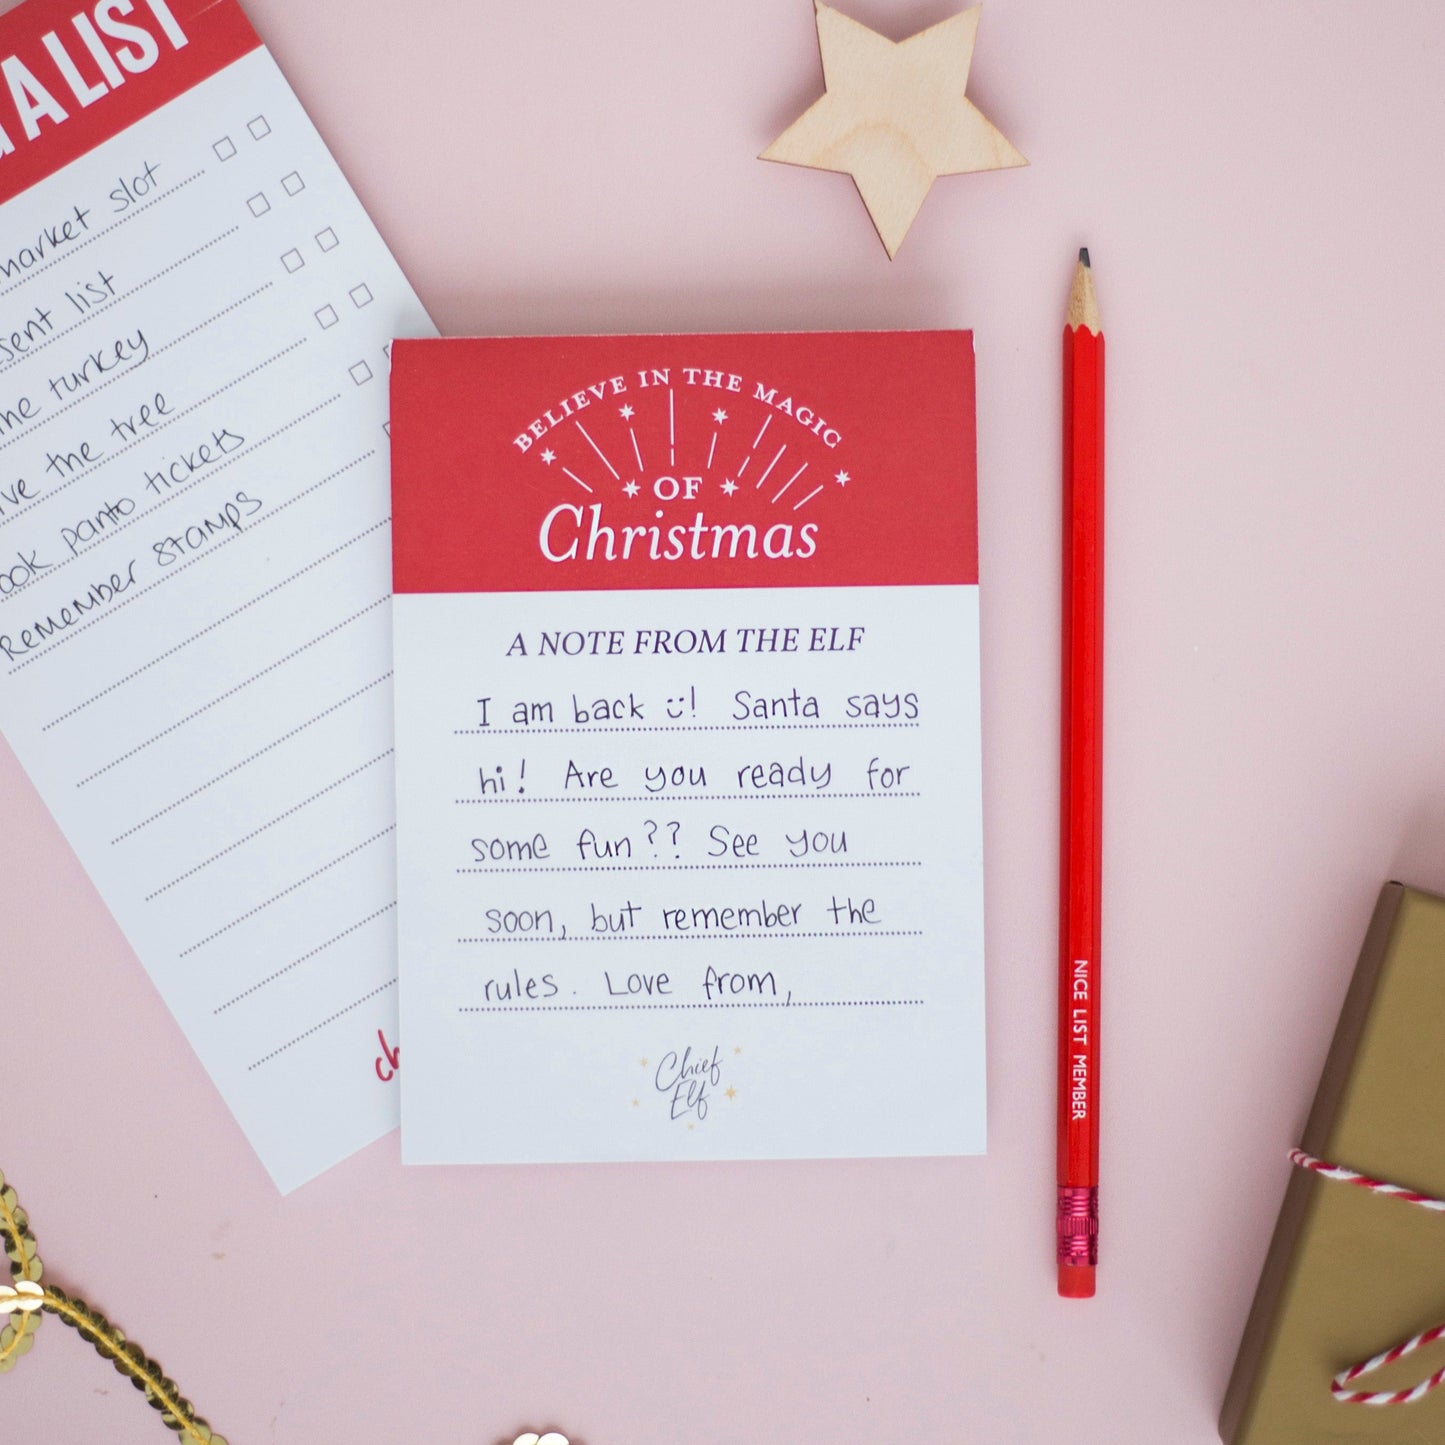 A LIST
slot
list
the turkey
the tree
panto tickets
Remember stamps
BELIEVE IN THE MAGIC
OF
Christmas
A NOTE FROM THE ELF
I am back :)! Santa says
hi! Are you ready for
some fun?? See you
soon, but remember the
rules. Love from,
Chief
Elf
NICE LIST MEMBER